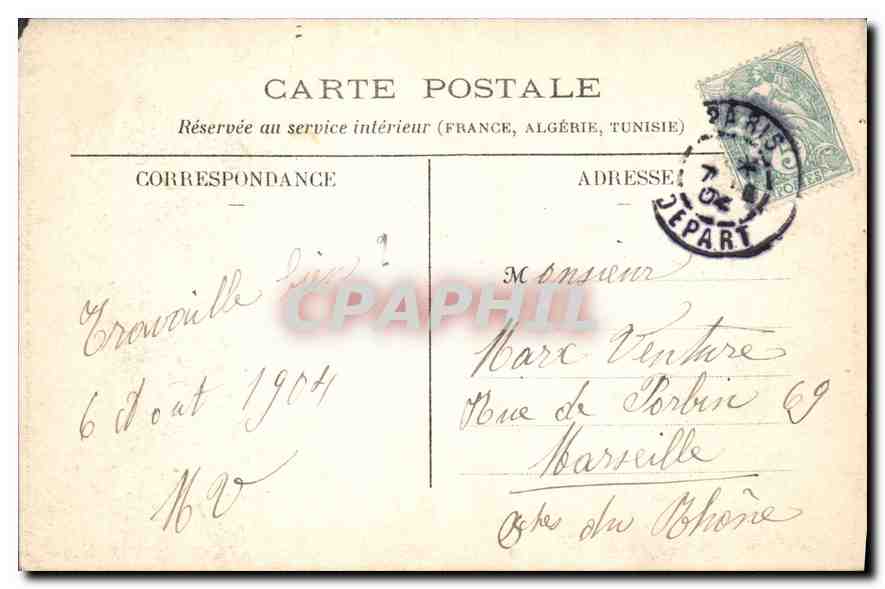 CARTE POSTALE
Réservée au service intérieur (FRANCE, ALGÉRIE, TUNISIE)
CORRESPONDANCE
ADRESSE
PARIS
DEPART
Travaille bien ?
6 Aout 1904
MV
Monsieur
Marx Venture
Rue de Porbin 69
Marseille
Bches du Rhône
CPAPHIL